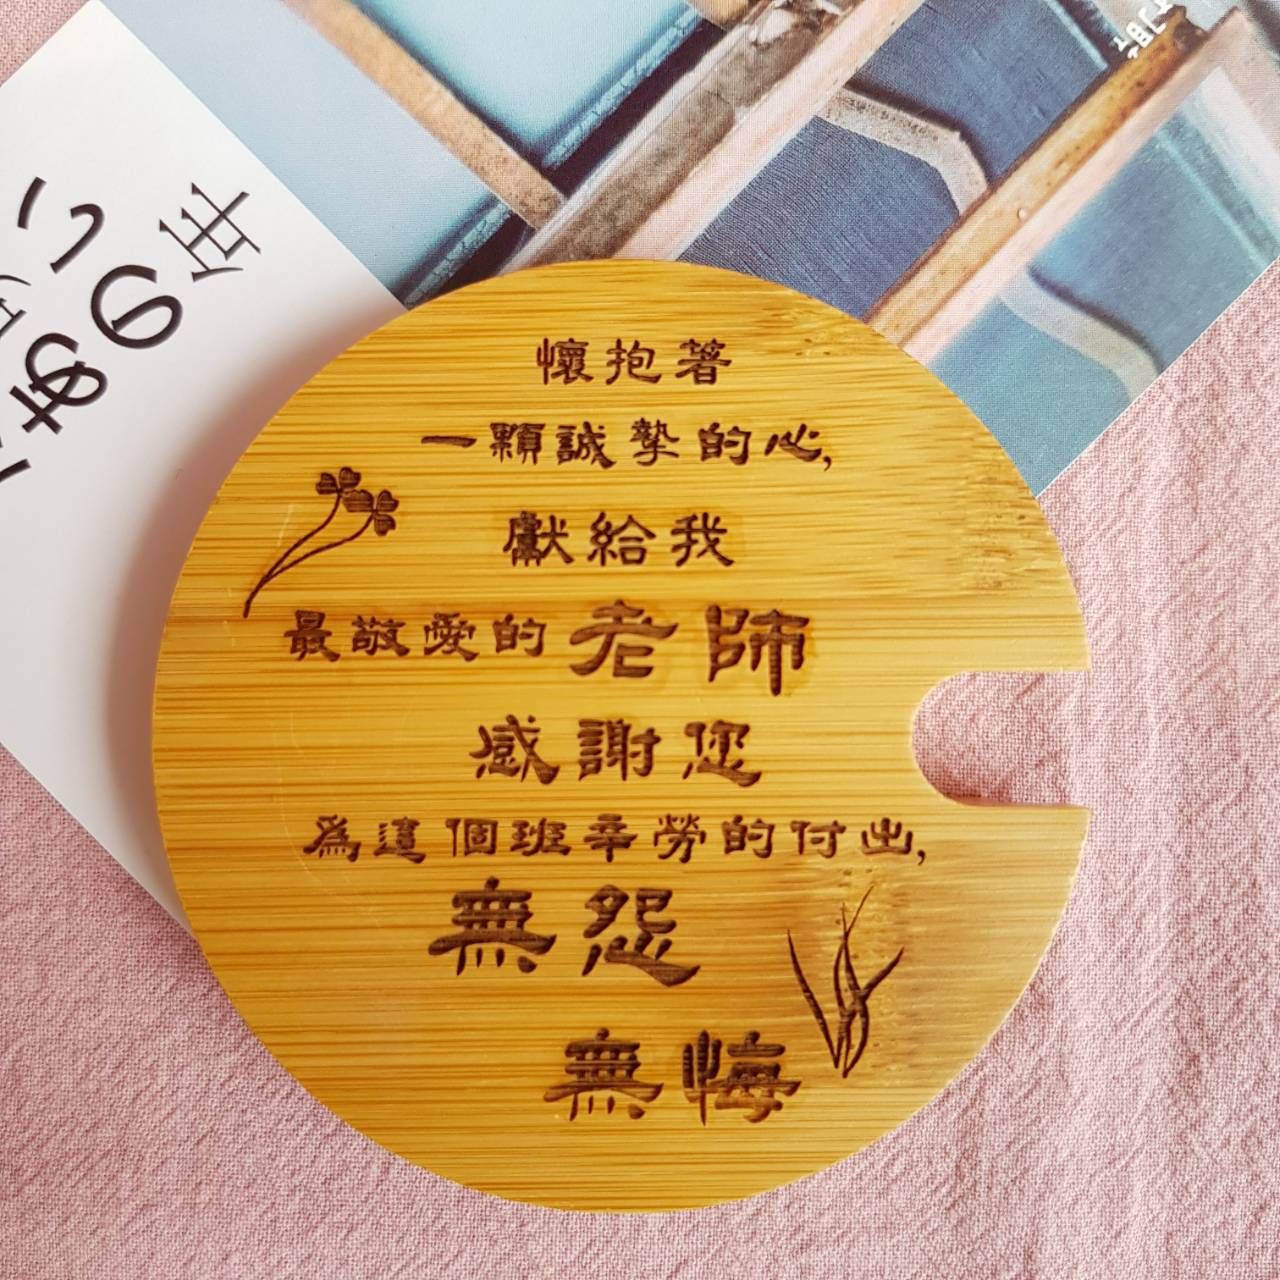 懷抱著
一顆誠摯的心,
獻給我
最敬愛的老師
感謝您
為這個班辛勞的付出,
無怨
無悔